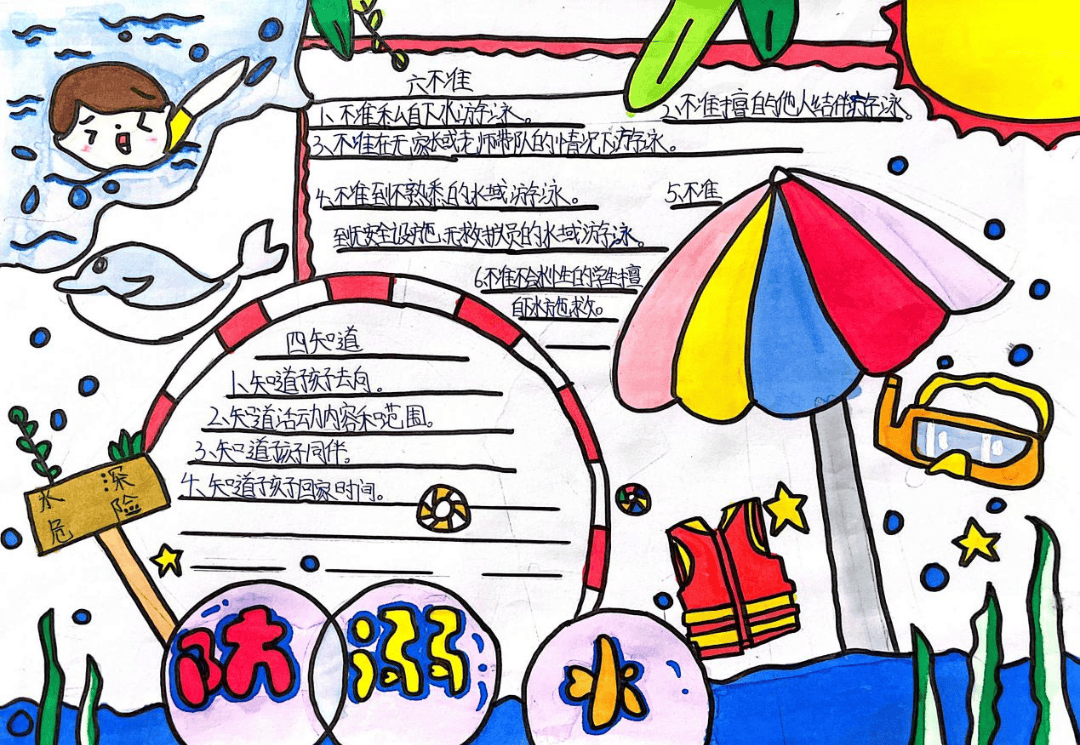 六不准
1、不准私自下水游泳。
2、不准擅自与他人结伴游泳。
3、不准在无家长或老师带队的情况下游泳。
4、不准到不熟悉的水域游泳。
5、不准
到无安全设施、无救护员的水域游泳。
6、不准不会水性的学生擅
自下水施救。
四知道
1、知道孩子去向。
2、知道活动内容和范围。
3、知道孩子同伴。
4、知道孩子回家时间。
水深
危险
防溺水